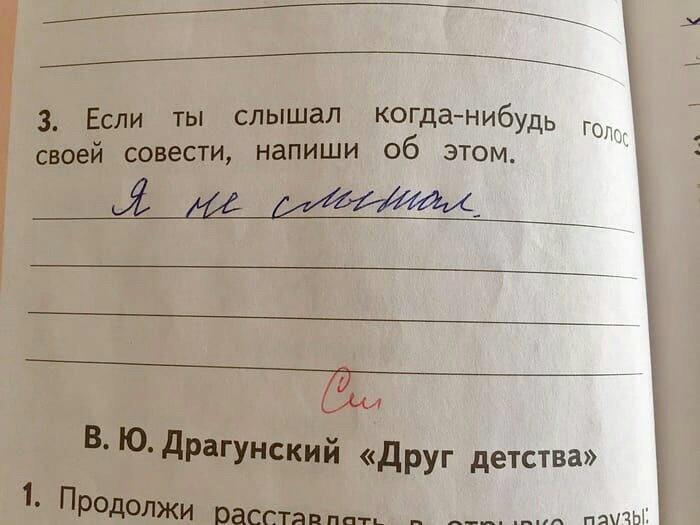 3. Если ты слышал когда-нибудь голос
своей совести, напиши об этом.
Я не слышал.
См
В. Ю. Драгунский «Друг детства»
1. Продолжи расставлять в отрывке паузы: